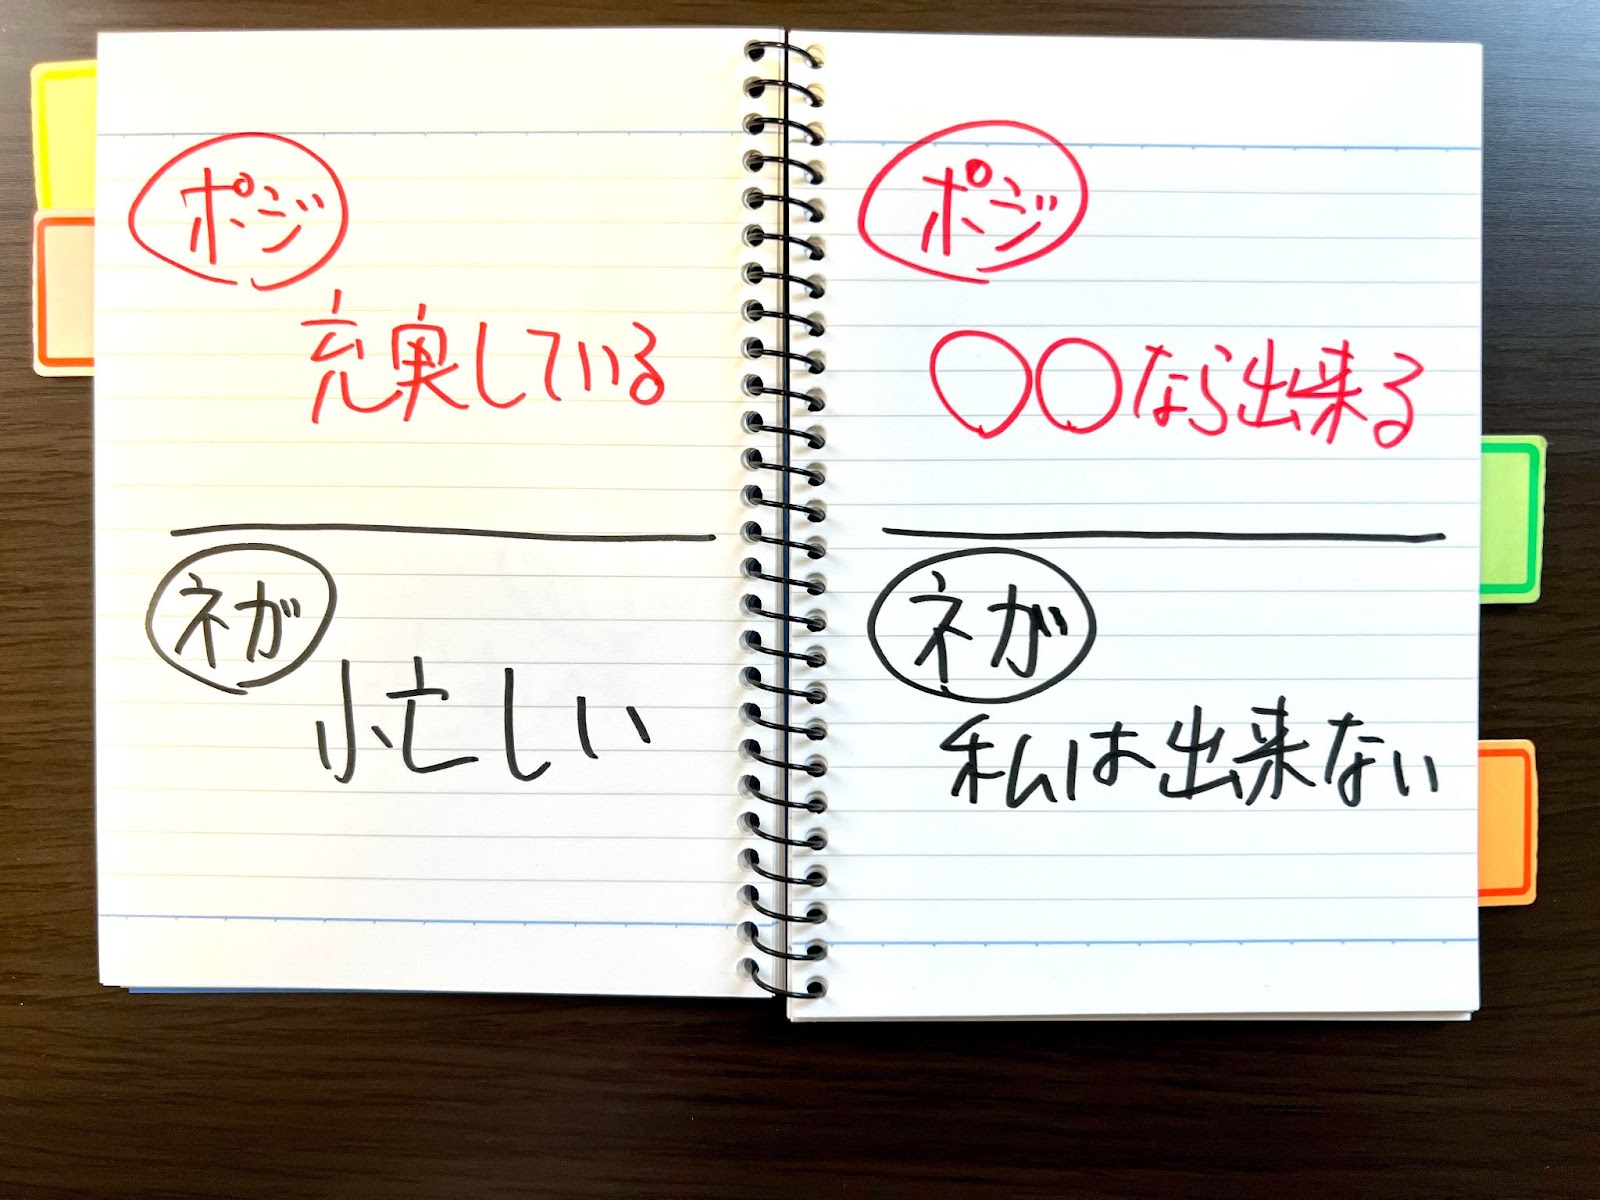 ポジ
充実している
ネガ
忙しい
ポジ
〇〇なら出来る
ネガ
私は出来ない